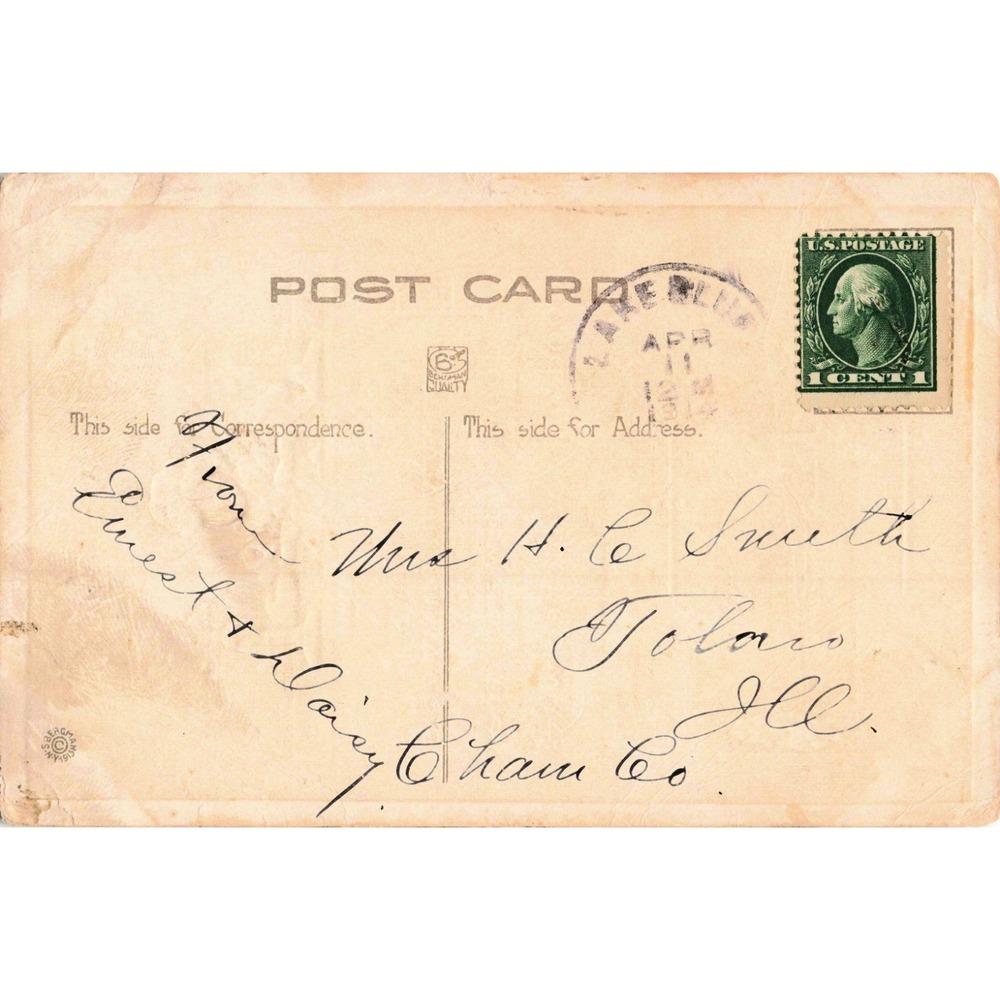 POST CARD
LAKE BLUFF
APR
11
1914
U.S. POSTAGE
1 CENT 1
BERGMAN
QUALITY
This side for Correspondence.
This side for Address.
From
Ernest & Daisy
Mrs H. C Smith
Tolono
Ill.
Cham Co
S. BERGMAN
©
N.Y.